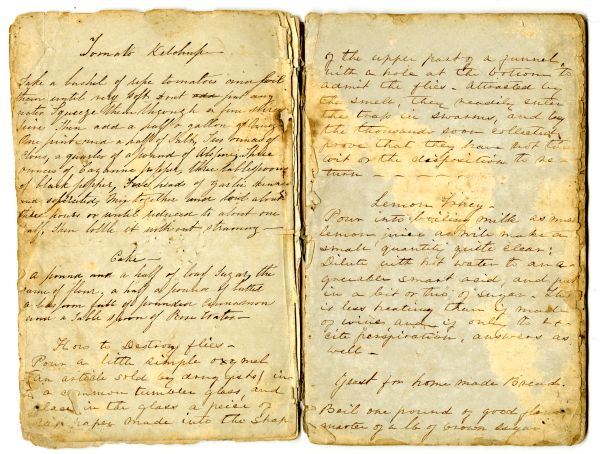 Tomato Ketchup
Take a bushel of ripe tomatoes and boil
them until very soft dont add put any
water Squeeze them through a fine
sieve then add a half gallon of vinegar
One pint and a half of Salt, two ounces of
Cloves, a quarter of a pound of Allspice, three
ounces of Cayenne pepper, three tablespoons
of black pepper, five heads of garlic skinned
and separated, mix together and boil about
three hours or until reduced to about one
half, then bottle it without straining
Cake
a pound and a half of loaf Sugar, the
same of flour, a half a pound of butter
a teaspoon full of pounded Cinnamon
and a table spoon of Rose water
How to Destroy flies
Pour a little simple oxymel
(an article sold by druggists) in
to a common tumbler glass, and
place in the glass a peice of
cap paper made into the shap
of the upper part of a funnel,
with a hole at the bottom to
admit the flies. Attracted by
the smell, they readily enter
the trap in swarms, and by
the thousands soon collected
prove that they have not the
wit or the disposition to re-
turn
Lemon Whey
Pour into boiling milk as much
lemon juice as will make a
small quantity quite clear;
Dilute with hot water to an a-
greeable smart acid, and put
in a bit or two of sugar. This
is less heating than if made
of wine, and if only to ex-
cite perspiration, answers as
well
Yeast for home made Bread.
Boil one pound of good flour
quarter of a lb of brown sugar